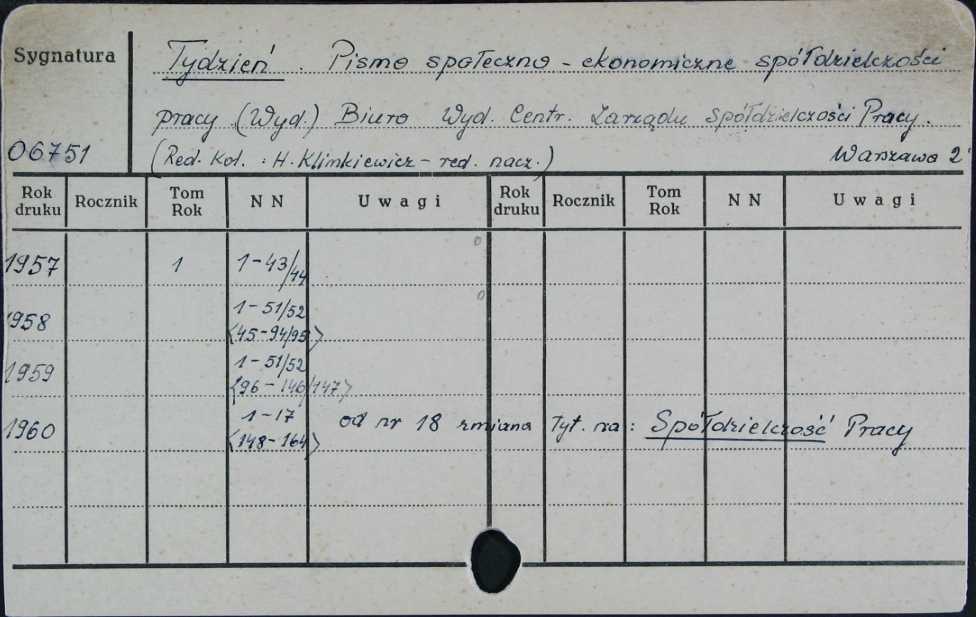 Sygnatura
Tydzień. Pismo społeczno - ekonomiczne spółdzielczości
pracy (Wyd.) Biuro Wyd. Centr. Zarządu Spółdzielczości Pracy.
06751
(Red. Kol. : H. Klimkiewicz - red. nacz.)
Warszawa 2
Rok druku Rocznik Tom Rok N N Uwagi Rok druku Rocznik Tom Rok N N Uwagi
1957 1 1-43/44
1958 1-51/52
<45-94/95>
1959 1-51/52
<96-146/147>
1960 1-17 od nr 18 zmiana tyt. na: Spółdzielczość Pracy
<148-164>